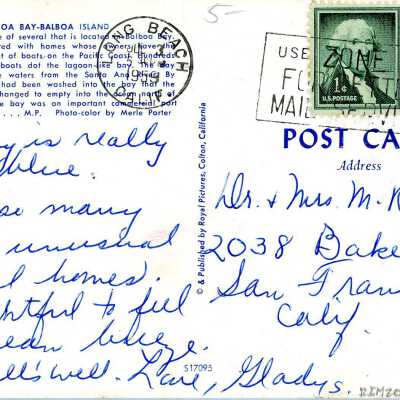 OA BAY-BALBOA ISLAND
e of several that is located in Balboa Bay.
red with homes whose owners have the
t of boats on the Pacific Coast. Hundreds
boats dot the lagoon-like bay. The bay
e waters from the Santa Ana River. By
had been washed into the bay that the
hanged to empty into the
e bay was an important commercial port
. . . . M.P. Photo-color by Merle Porter
LONG BEACH
1959
CALIF.
5-
USE ZONE
FO
MAIL
1¢
U.S. POSTAGE
© & Published by Royal Pictures, Colton, California
POST CA
Address
y is really
blue.
so many
unusual
l homes.
htful to feel
ean breeze.
ll's well. Love, Gladys.
Dr. & Mrs. M. R
2038 Bake
San Fran
Calif.
S17095